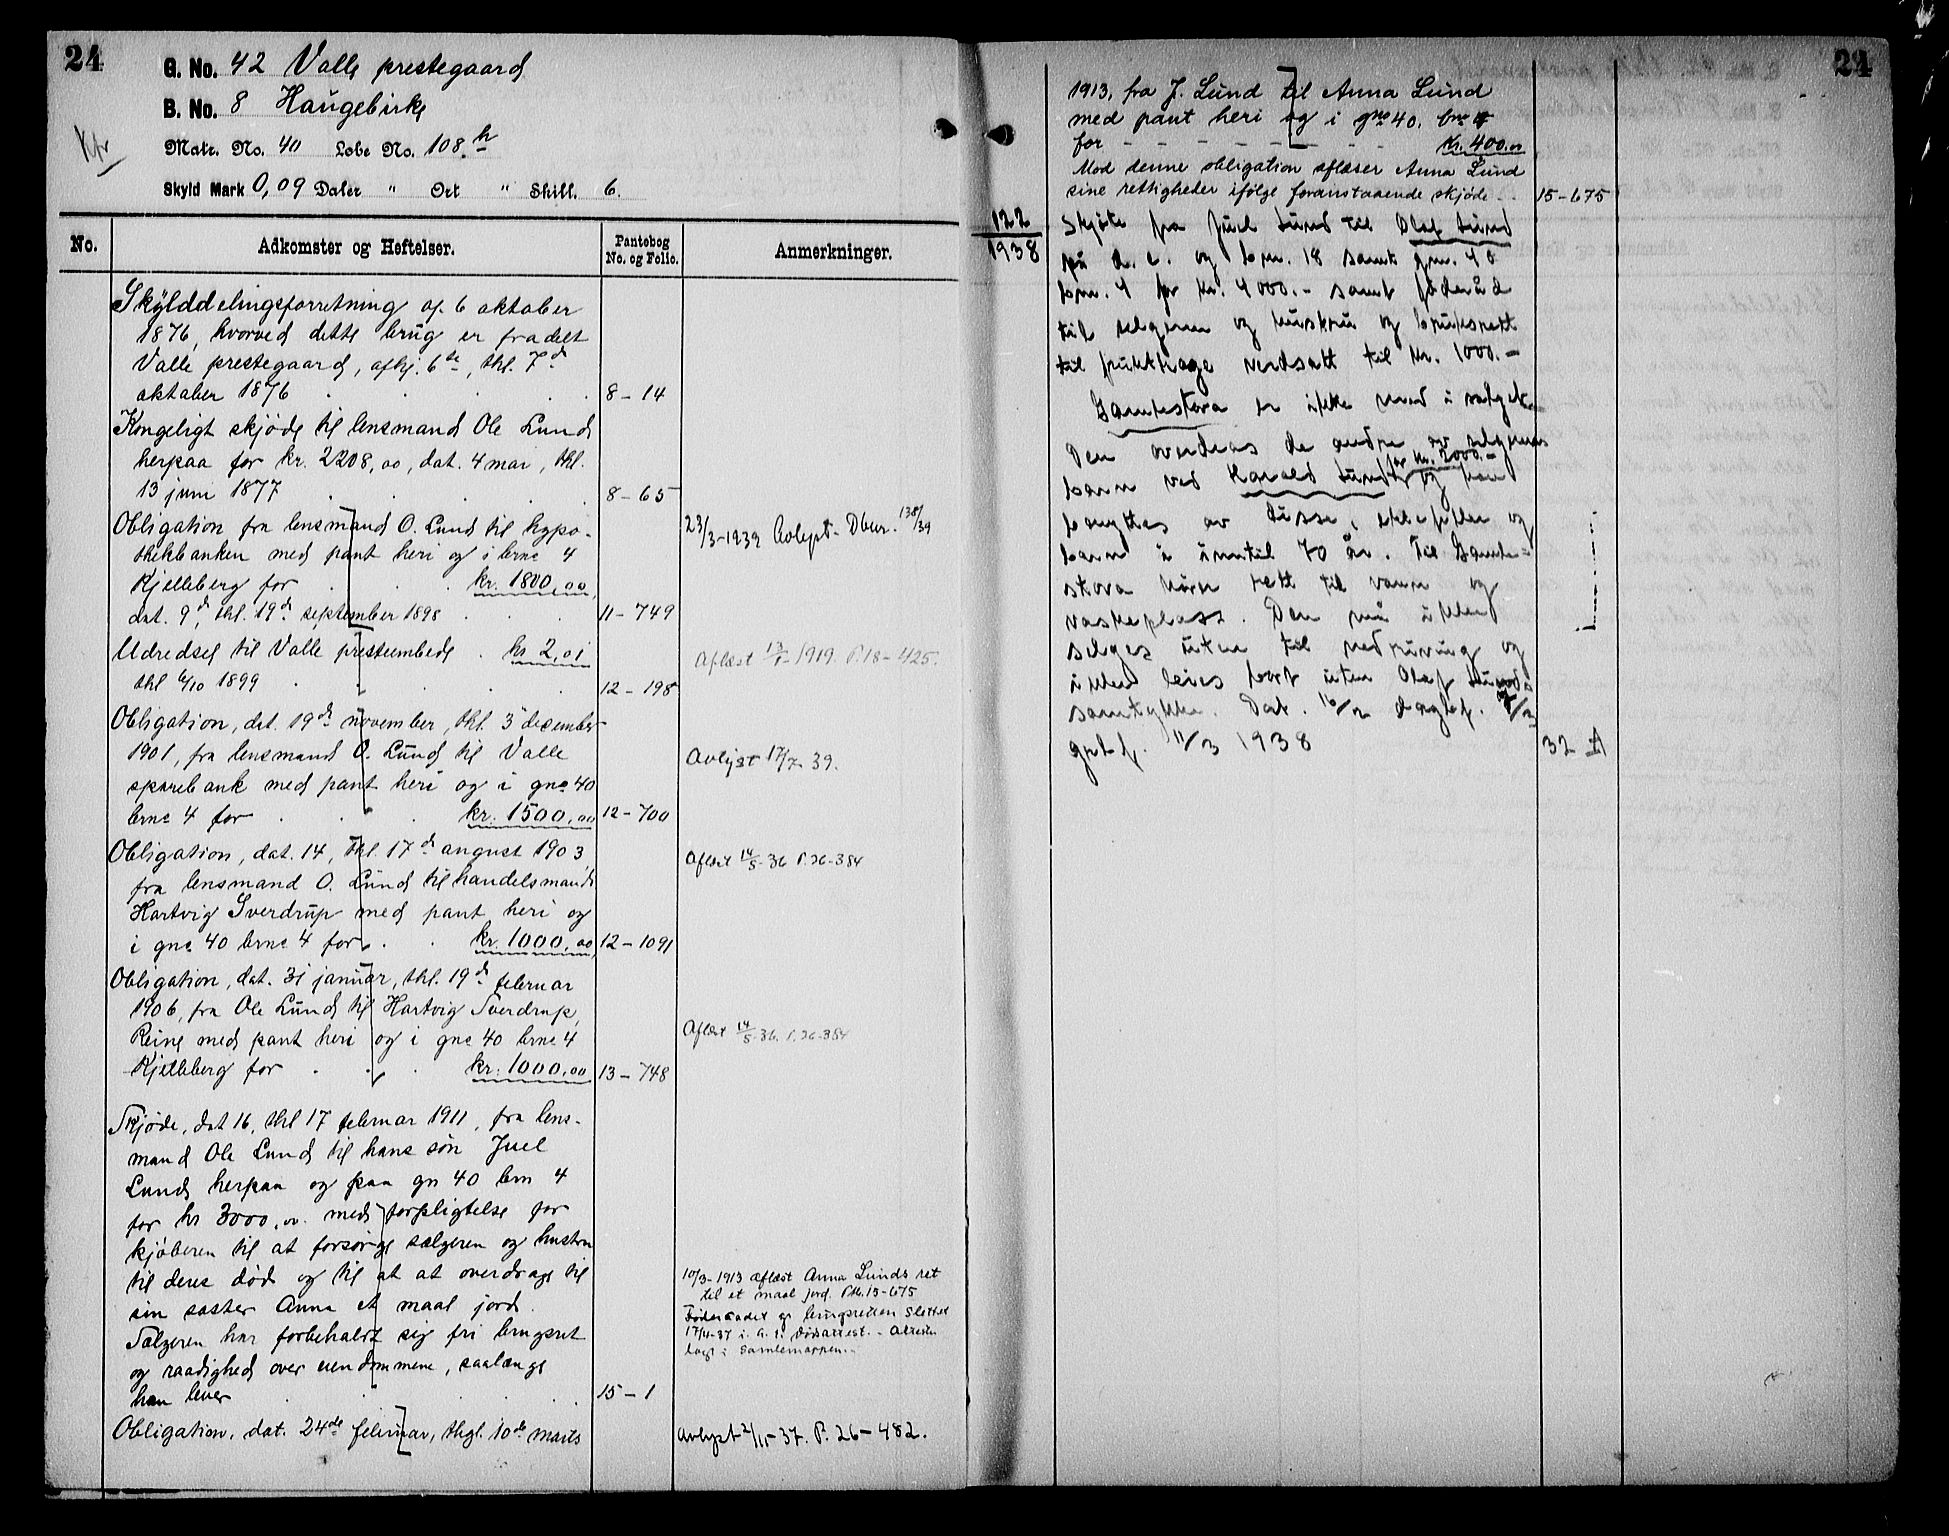 24
G. No. 42 Valle prestegaard
B. No. 8 Haugebirke
Kfr
Matr. No. 40 Løbe No. 108.h
Skyld Mark 0,09 Daler " Ort " Skill. 6.
No.
Adkomster og Heftelser.
Pantebog No. og Folio.
Anmerkninger.
Skylddelingsforretning af 6 oktober
1876, hvorved dette brug er fradelt
Valle prestegaard, afhj. 6te, thl. 7d
oktober 1876 . . . . 8-14
Kongeligt skjøde til lensmand Ole Lund
herpaa for kr. 2208,00, dat. 4 mai, thl.
13 juni 1877 . . . . 8-65
Obligation fra lensmand O. Lund til hypo- 23/3-1939 Avlyst. Dbnr. 138/39
thekbanken med pant heri og i brnr 4
Kjelleberg for . . . kr. 1800,00,
dat. 9d, thl. 19d september 1898 . . . 11-749
Udredsel til Valle presteembede . kr 2,01 Aflæst 13/1-1919. P.18-425.
thl 6/10 1899 . . . . 12-198
Obligation, dat. 19de november, thl. 3 desember
1901, fra lensmand O. Lund til Valle Avlyst 17/7 39.
sparebank med pant heri og i gnr 40
brnr 4 for . . . kr. 1500,00 12-700
Obligation, dat. 14, thl. 17de august 1903, Aflæst 14/5-36 P.26-384
fra lensmand O. Lund til handelsmand
Hartvig Sverdrup med pant heri og
i gnr 40 brnr 4 for . . kr. 1000,00, 12-1091
Obligation, dat. 31 januar, thl. 19de februar
1906, fra Ole Lund til Hartvig Sverdrup, Aflæst 14/5-36. P.26-384
Reine med pant heri og i gnr 40 brnr 4
Kjelleberg for . . . kr. 1000,00 13-748
Skjøde, dat 16, thl 17 februar 1911, fra lens-
mand Ole Lund til hans søn Juel
Lund herpaa og paa gn 40 brn 4
for kr 3000,00. med forpligtelse for
kjøberen til at forsørge sælgeren og hustru
til deres død og til at at overdrage til 10/3-1913 aflæst Anna Lunds ret
sin søster Anna et maal jord. til et maal jord. Ptb.15-675
Sælgeren har forbeholdt sig fri brugsret Føderaadet og brugsretten slettet
og raadighed over eiendommene, saalænge 17/4-37 i h. t. dødsattest. - Attesten
han lever . . . . 15-1 lagt i samlemappen.
Obligation, dat. 24de februar, thgl. 10de marts Avlyst 2/11-37. P. 26-482.
24
1913, fra J. Lund til Anna Lund
med pant heri og i gnr 40. bnr 4
for - - - - - - - kr. 400.00
Mod denne obligation aflæser Anna Lund
sine rettigheder ifølge foranstaaende skjøde - . 15-675
122/1938 Skjøte fra Juel Lund til Olaf Lund
på d. e. og bnr. 18 samt gnr. 40
bnr. 4 for kr. 4000.- samt føderåd
til selgeren og huskru og bruksrett
til frukthage verdsatt til kr. 1000.-
Gamlestova er ikke med i salget.
Den overdras de andre av selgerens
barn ved Harald Lund for kr. 2000.- og kan
benyttes av disse, ektefeller og
barn i inntil 70 år. Til Gamle-
stova hører rett til vann og
vaskeplass. Den må ikke
selges uten til nedriving og
ikke leies bort uten Olaf Lunds
samtykke. Dat. 10/2 dagbf. og 8/3
grbf. 11/3 1938 32 A